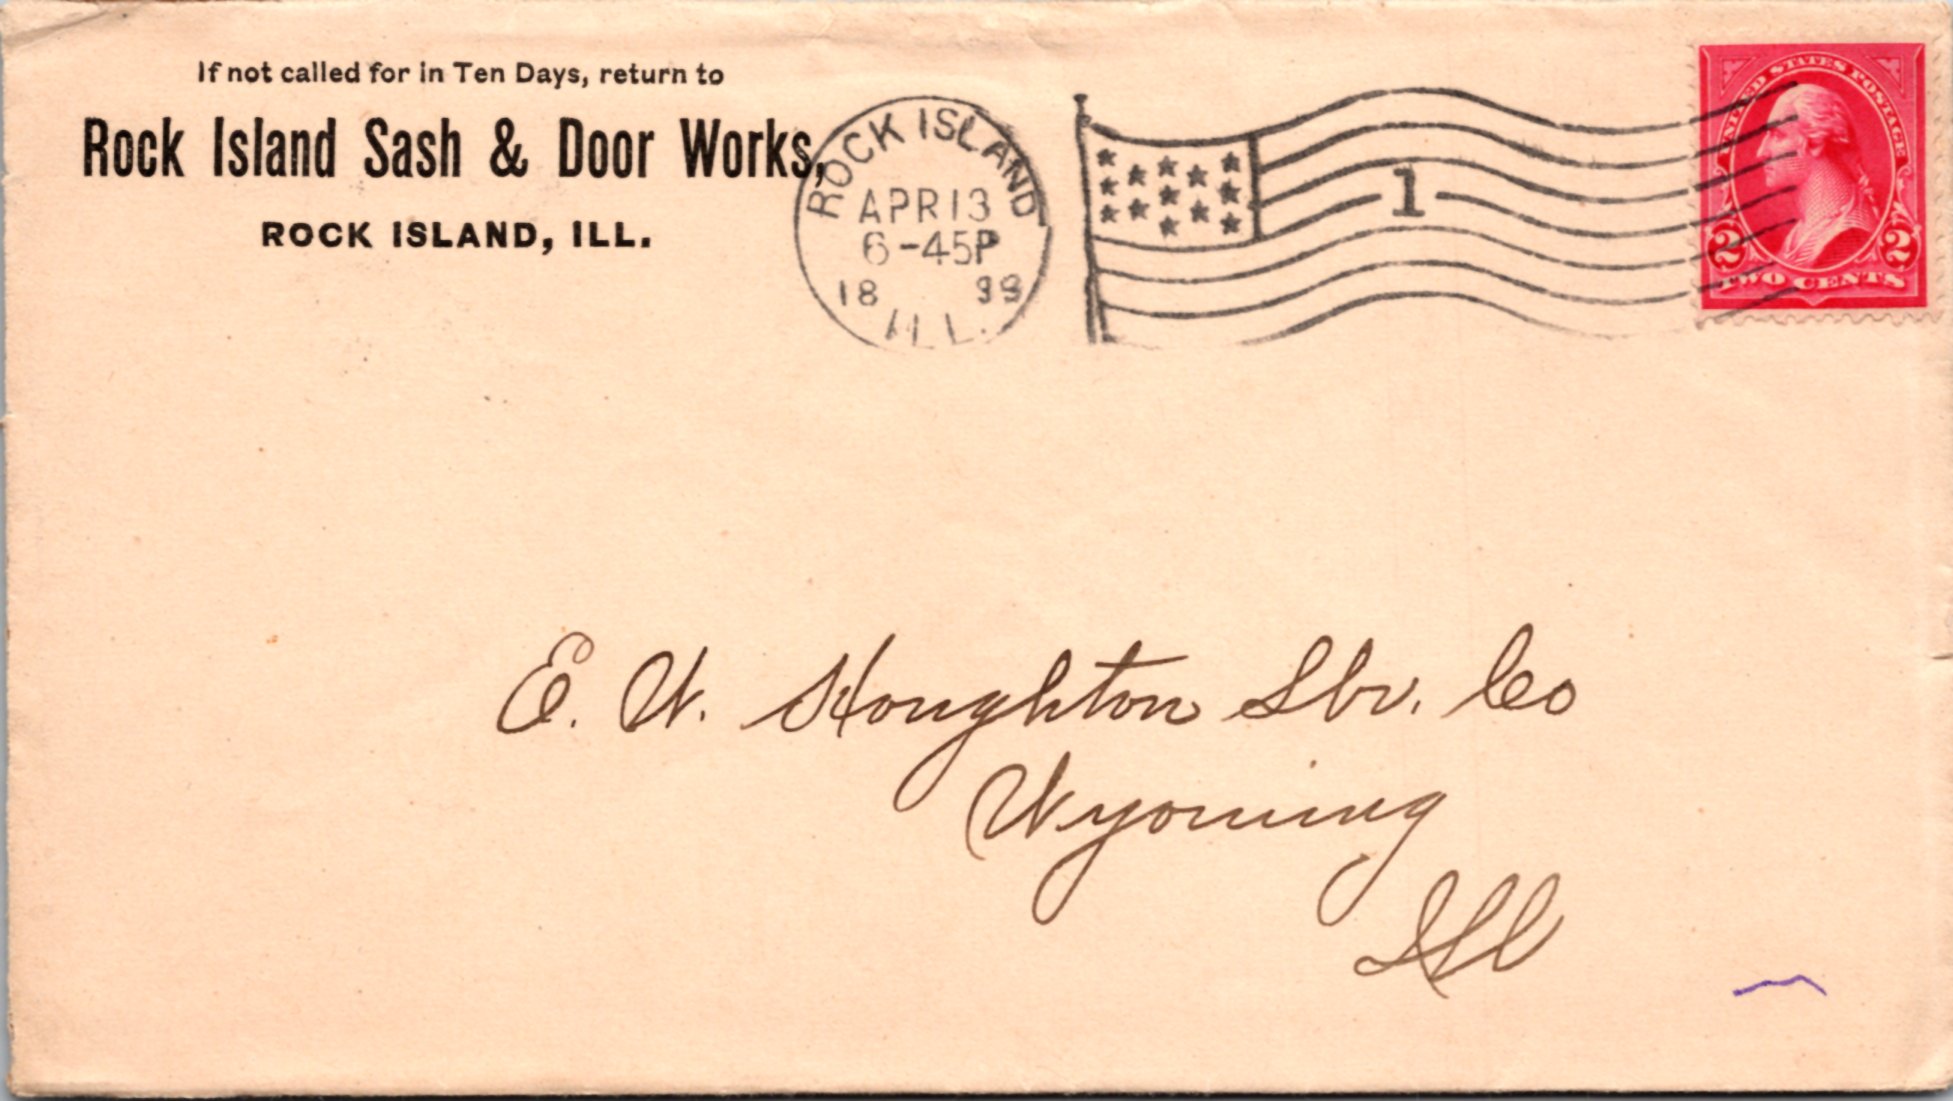 If not called for in Ten Days, return to
Rock Island Sash & Door Works,
ROCK ISLAND, ILL.
ROCK ISLAND
APR 13
6-45P
18 99
ILL.
1
UNITED STATES POSTAGE
2 2
TWO CENTS
E. W. Houghton Lbr. Co
Wyoming
Ill